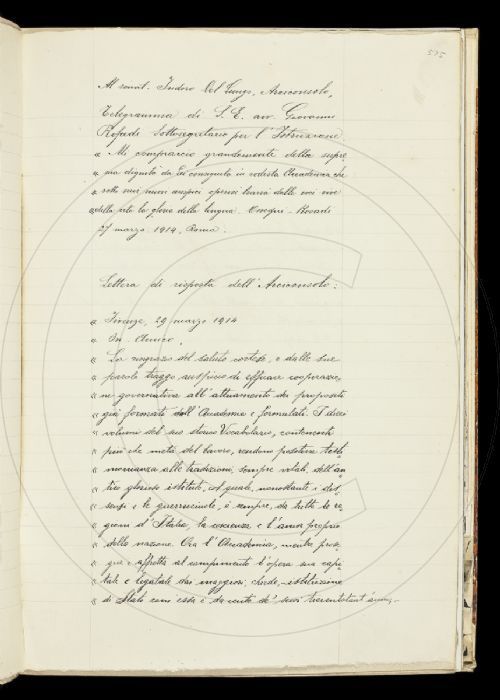 525
Al senat. Isidoro Del Lungo, Arciconsolo,
Telegramma di S. E. avv. Giovanni
Rosadi Sottosegretario per l'Istruzione.
« Mi compiaccio grandemente della supre
« ma dignità da Lei conseguita in codesta Accademia che
« sotto suoi nuovi auspici operosa trarrà dalle voci vive
« della arte la glorie della lingua. Ossequi - Rosadi
27 marzo 1914, Roma.
Lettera di risposta dell'Arciconsolo:
« Firenze, 29 marzo 1914
« On. Amico,
« La ringrazio del saluto cortese, e dalle sue
« parole traggo auspicio di efficace cooperazio-
« ne governativa all'attuamento dei propositi
« già formati dall'Accademia e formulati. I dieci
« volumi del suo storico Vocabolario, contenenti
« più che metà del lavoro, rendono positiva testi-
« monianza alle tradizioni, sempre vitali, dell'an-
« tico glorioso istituto, al quale, nonostante i dis-
« sensi e le guerricciuole, è sempre, da tutte le re-
« gioni d'Italia, la coscienza e l'amor proprio
« della nazione. Ora l'Accademia, mentre prose-
« gue e affretta al compimento l'opera sua capi-
« tale e legatale dai maggiori, chiede, istituzione
« di Stato com'essa è da cento de' suoi trecentotrent'anni,